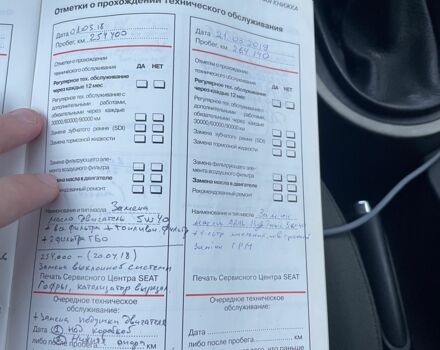 Отметки о прохождении Технического обслуживания
КНИЖКА
Дата 01.03.18
Пробег, км 254400
Отметки о прохождении
технического обслуживания ДА НЕТ
Регулярное тех. обслуживание
через каждые 12 мес
Регулярное тех. обслуживание с
дополнительными работами,
обязательными через каждые
30000/60000/90000 км
Замена зубчатого ремня (SDI)
Замена тормозной жидкости
Замена фильтрующего эле-
мента воздушного фильтра
масла в двигателе
ремонт
Наименование и тип масла Замена
масло двигатель 5W40
+ фильтра + топливн. фильтр
+ 2 фильтра ГБО
254,000 – (20.04.18)
Замена выхлопной системы
Печать Сервисного Центра SEAT
Гофры, катализатор вырезан.
Очередное техническое
обслуживание:
+ Замена подушки двигателя
Дата ① Над коробкой
либо после пробега км
② Нижняя
Дата 21.03.2019
Пробег, км. 264 140
Отметки о прохождении
технического обслуживания ДА НЕТ
Регулярное тех. обслуживание
через каждые 12 мес
Регулярное тех. обслуживание с
дополнительными работами,
обязательными через каждые
30000/60000/90000 км
Замена зубчатого ремня (SDI)
Замена тормозной жидкости
Замена фильтрующего эле-
мента воздушного фильтра
Замена масла в двигателе
Рекомендованный ремонт
Наименование и тип масла Замена
масла
ГРМ
Печать Сервисного Центра SEAT
Очередное техническое
обслуживание:
Дата
либо после пробега км